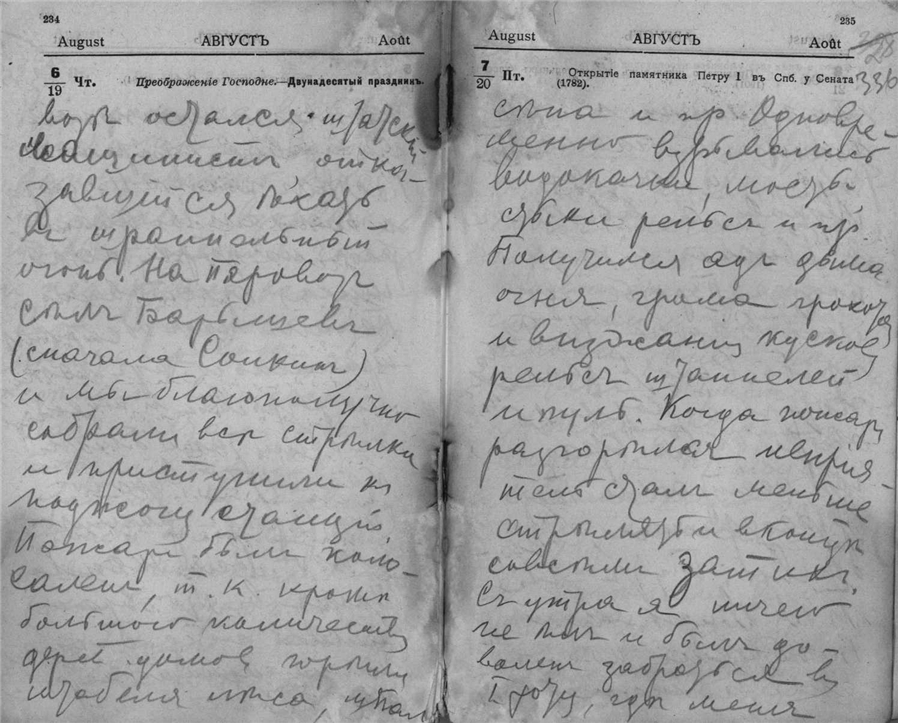 234
August АВГУСТЪ Août
6/19 Чт. Преображеніе Господне.—Двунадесятый праздникъ.
возъ остался штатскій
машинистъ отка-
завшійся ѣхать
въ шрапнельный
огонь. На паровозъ
сѣлъ Барышевъ
(сначала Сопкинъ)
и мы благополучно
собрали всѣ стрѣлки
и приступили къ
поджогу станціи
Пожаръ былъ коло-
саленъ, т. к. кромѣ
большого количества
дерев. домовъ горѣли
штабеля лѣса, шпалъ
235
August АВГУСТЪ Août
336
7/20 Пт. Открытіе памятника Петру I въ Спб. у Сената
(1782).
сѣна и пр. Одновре-
менно взрывались
водокачки, мостъ
стыки рельсъ и пр.
Получился адъ дыма
огня, грома грохота
и визжанія кусковъ
рельсъ шрапнелей
и пуль. Когда пожаръ
разгорѣлся непрія-
тель сталъ меньше
стрѣлять и вконцѣ
совсѣмъ затихъ.
Съ утра я ничего
не ѣлъ и былъ до-
воленъ забраться въ
I роту, гдѣ меня